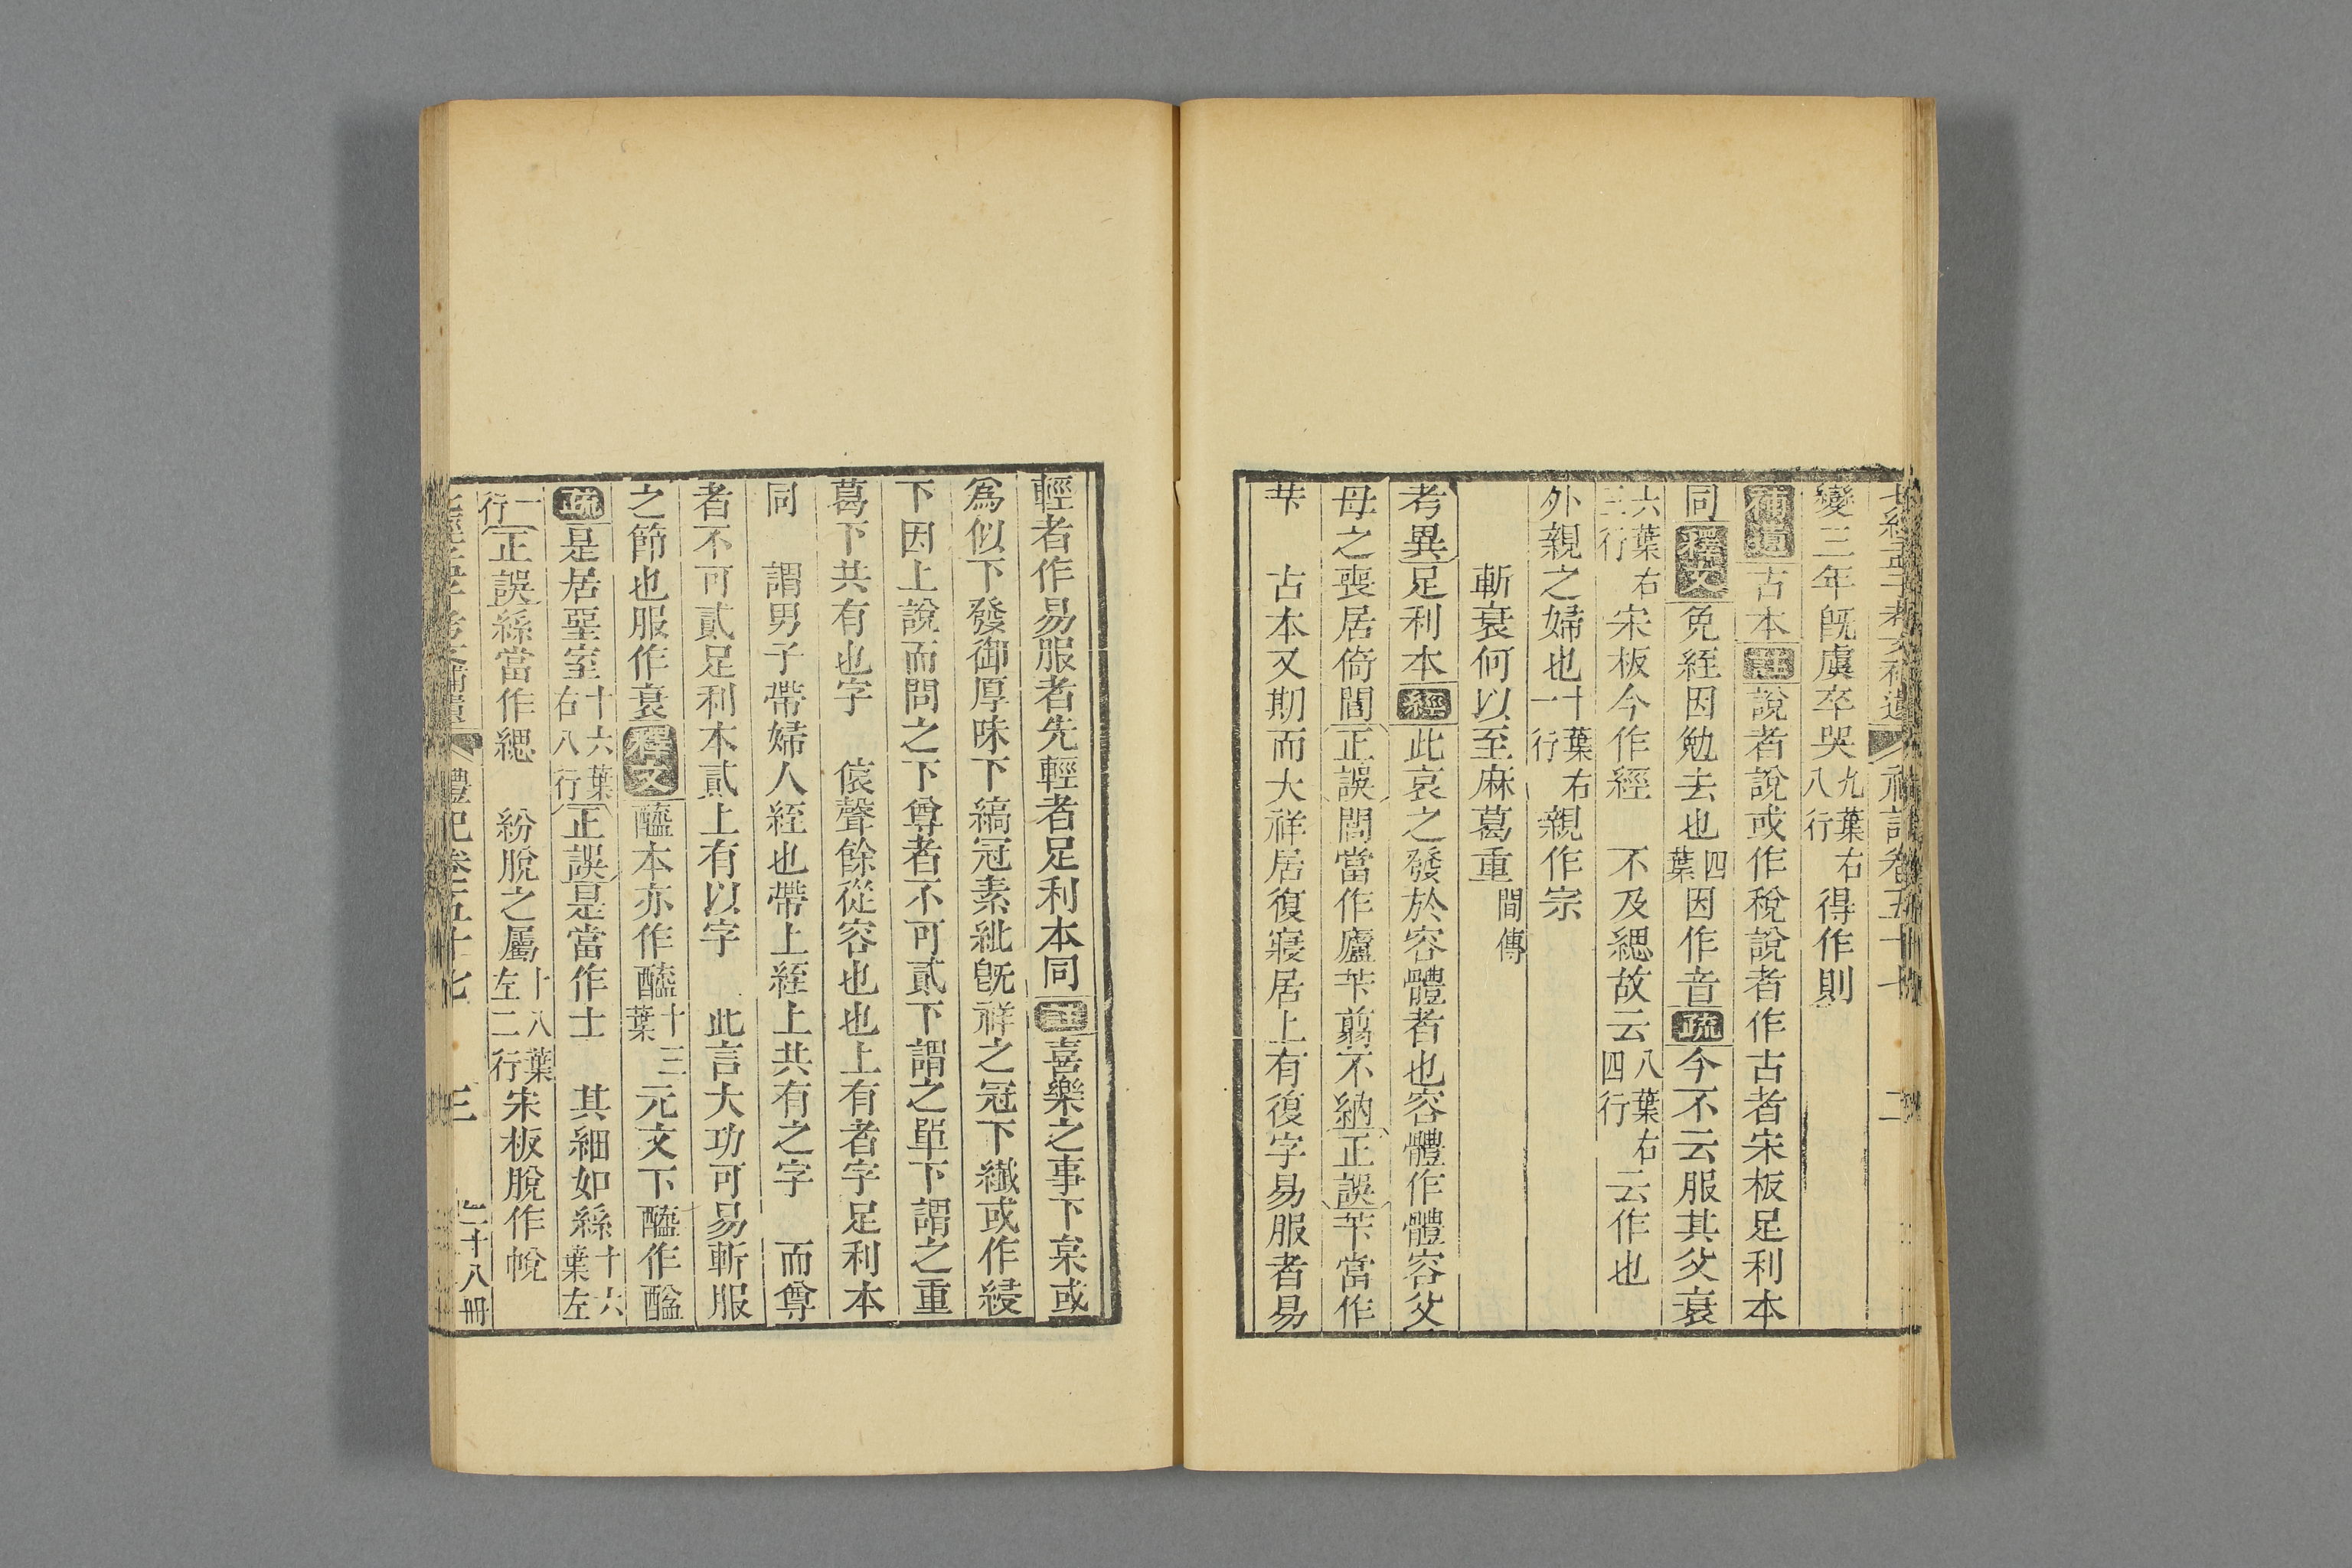 變三年旣虞卒哭九葉右八行得作則
補遺古本註說者說或作稅說者作古者宋板足利本
同釋文免絰因勉去也四葉因作音疏今不云服其父衰
六葉右三行宋板今作經　不及緦故云八葉右四行云作也
外親之婦也十葉右一行親作宗
斬衰何以至麻葛重間傳
考異足利本經此哀之發於容體者也容體作體容父
母之喪居倚閭正誤閭當作廬芐翦不納正誤芐當作
芐　古本又期而大祥居復寢居上有復字易服者易
輕者作易服者先輕者足利本同註喜樂之事下枲或
爲似下發御厚味下縞冠素紕旣祥之冠下纖或作綅
下因上說而問之下尊者不可貳下謂之單下謂之重
葛下共有也字　偯聲餘從容也也上有者字足利本
同　謂男子帶婦人絰也帶上絰上共有之字　而尊
者不可貳足利本貳上有以字　此言大功可易斬服
之節也服作衰釋文醯本亦作醯十三葉元文下醯作醯
疏是居堊室十六葉右八行正誤是當作士　其細如絲十六葉左
一行正誤絲當作緦　紛脫之屬十八葉左二行宋板脫作帨
禮記卷五十七　三　七十八冊